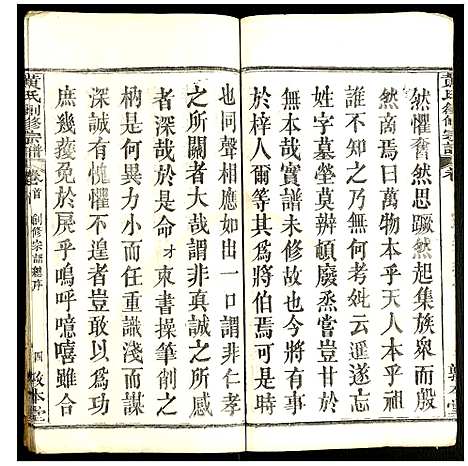 黃氏創修宗譜
然懼奮然思蹶然起集族衆而殷
然商焉曰萬物本乎天人本乎祖
誰不知之乃何考妣云遥遂忘
姓字墓塋莫辨頓廢烝嘗豈甘於
無本哉實譜未修故也今欲修之
於梓人爾等其將何侶矣族人
也同聲相應如出一口謂非仁孝
之所關者大哉謂非真誠之所感
者深哉於是命才束書操筆削之
柄是異力小而任重識淺而謀
深誠有愧懼不遑者豈敢以為功
庶幾獲免於戾乎嗚呼噫嘻雖合
黃氏創修宗譜
卷首
創修宗譜總序
四
敦本堂